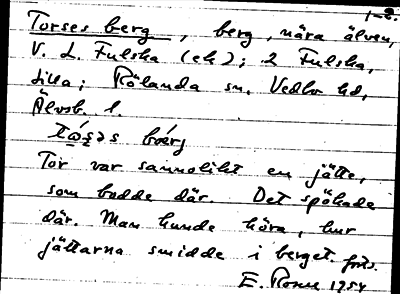 1-2.
Torses berg, berg, nära älven,
V. L. Fulska (ek); 2 Fulska,
Lilla; Rölanda sn, Vedbo hd,
Älvsb. l.
Tor var sannolikt en jätte,
som bodde där. Det spökade
där. Man kunde höra, hur
jättarna smidde i berget. forts.
E. Rosen 1954